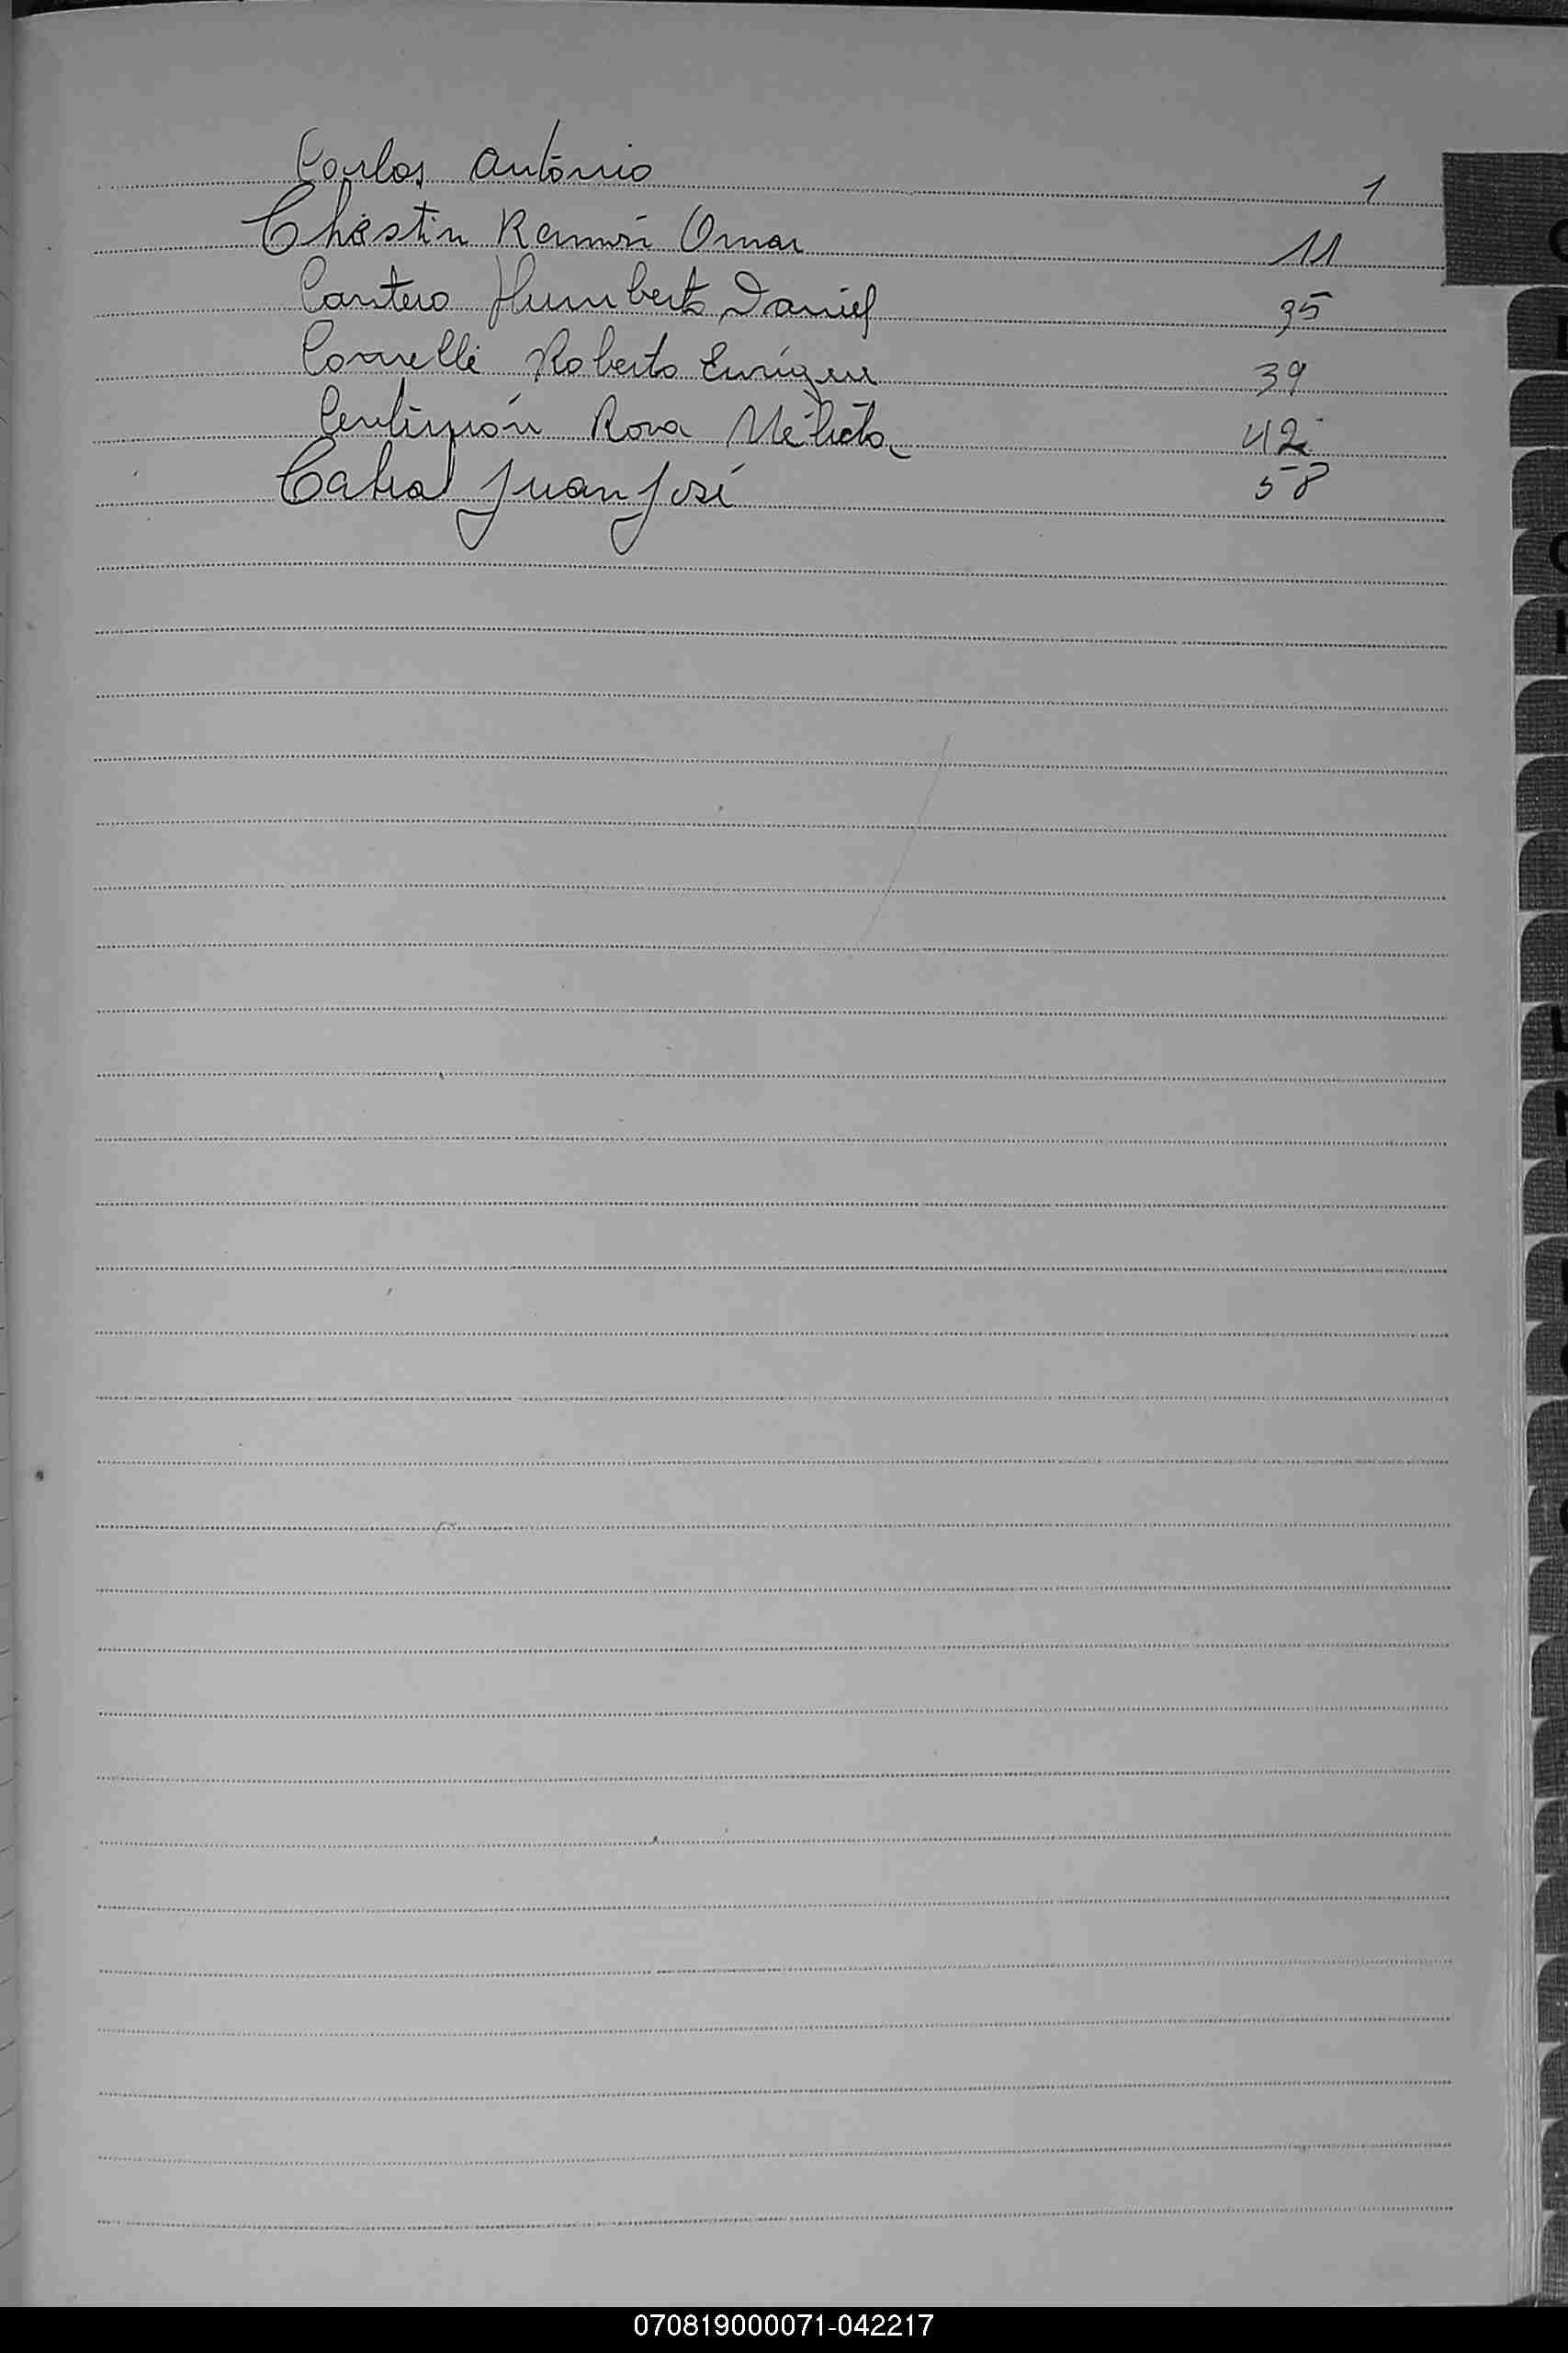 Carlos Antonio 1
Chastin Ramón Omar 11
Cantero Humberto Daniel 35
Roberto Enrique 39
Centurión Rosa 42
Cabral Juan José 58
070819000071-042217